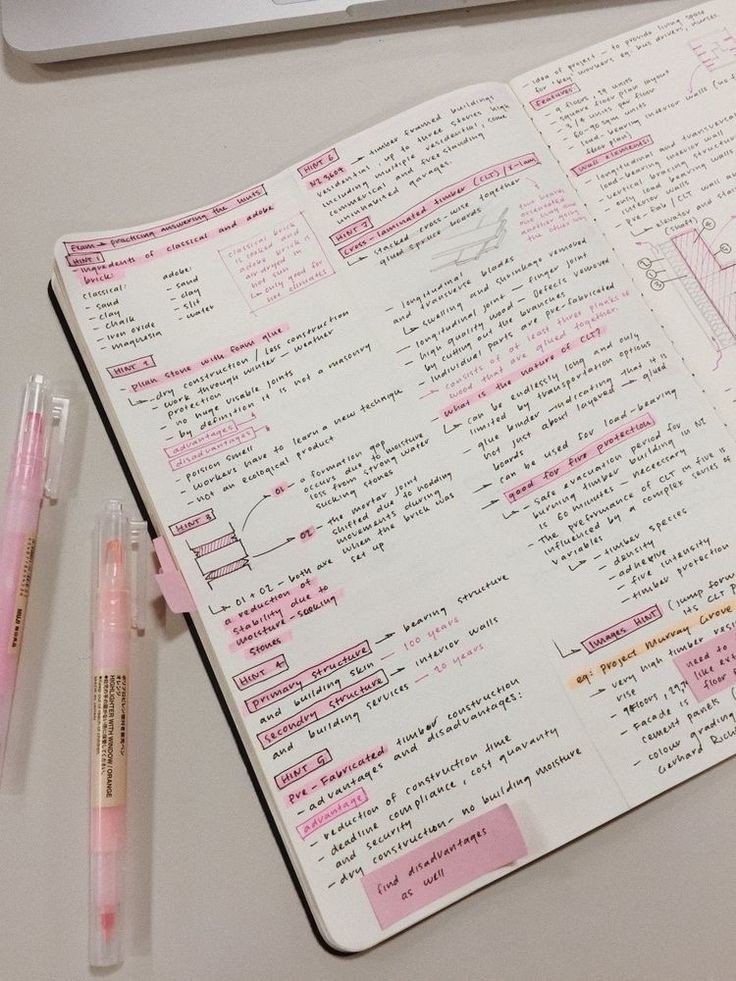 Exam → practicing answering the hints
HINT 1
- ingredents of classical and adobe
brick:
classical:
- sand
- clay
- chalk
- iron oxide
- magnesia
adobe:
- sand
- clay
- slit
- water
classical brick
is baked and
adobe brick is
air-dryed in
hot sun
↳ only good for
hot climates
HINT 2
- plian stone with foam glue
↳ - dry construction / less construction
- work through winter - weather
protection
- no huge visable joints
- by definition it is not a masonry
advantages
disadvantages
- poision smell
- workers have to learn a new technique
- not an ecological product
HINT 3
01 - a formation gap
occurs due to moisture
loss from strong water
sucking stones
02 - the mortar joint
shifted due to nodding
movements during
when the brick was
set up
↳ 01 + 02 - both are
a reduction of
stability due to
moisture-seeking
stones
HINT 4
primary structure → bearing structure
and building skin — 100 years
secondry structure → interior walls
and building services — 20 years
HINT 5
Pre-Fabricated timber construction
- advantages and disadvantages:
advantage
- reduction of construction time
- deadline compliance, cost quaranty
and security
- dry construction - no building moisture
find disadvantages
as well
HINT 6
NZ 3604 → timber framed buildings
residential, up to three stories high
including multiple residential, some
commercial and free-standing
uninhabited garages.
HINT 7
cross-laminated timber (CLT) / x-lam
↳ stacked cross-wise together
glued spruce boards
- longitudinal
and transverse boards
↳ swelling and shrinkage removed
- longitudinal joint — finger joint
- high quality wood — Defects removed
by cutting out the branches
- Individual parts are pre-fabricated
- consists of at least three planks of
wood that are glued together.
what is the nature of CLT?
↳ - can be endlessly long and only
limited by transportation options
- glue binder - indicating that it is
not just about layered → glued
boards
- can be used for load-bearing
→ good for fire protection
↳ - safe evacuation period for
burning timber building in NZ
is 60 minutes - neccecary
- The preformance of CLT in fire is
influenced by a complex series of
variables
↳ - timber species
- density
- adhesive
- fire intensity
- timber protection
↳ Images HINT (jump form
its CLT
eg: Project Murray Grove
→ very high timber
rise
- 9 floors, 29
- Facade is
cement panels
- colour grading
Gerhard
need to
like
floor
- idea of project - to provide living space
for 'key' workers eg: bus drivers, nurses
Features
- 9 floors, 29 units
- square floor plan layout
- 3/4 units per floor
- 60-90 sqm units
- load-bearing interior walls (no
floor plan)
Wall elements:
- longitudinal and
load-bearing interior
- vertical bracing structure
- outly load bearing walls
interior walls
- Pre-fab / CLT wall
↳ elevator and stair
(shaft)
MUJI
ポリプロピレン蛍光ペン
オレンジ
HIGHLIGHTER WITH WINDOW / ORANGE
MADE IN JAPAN